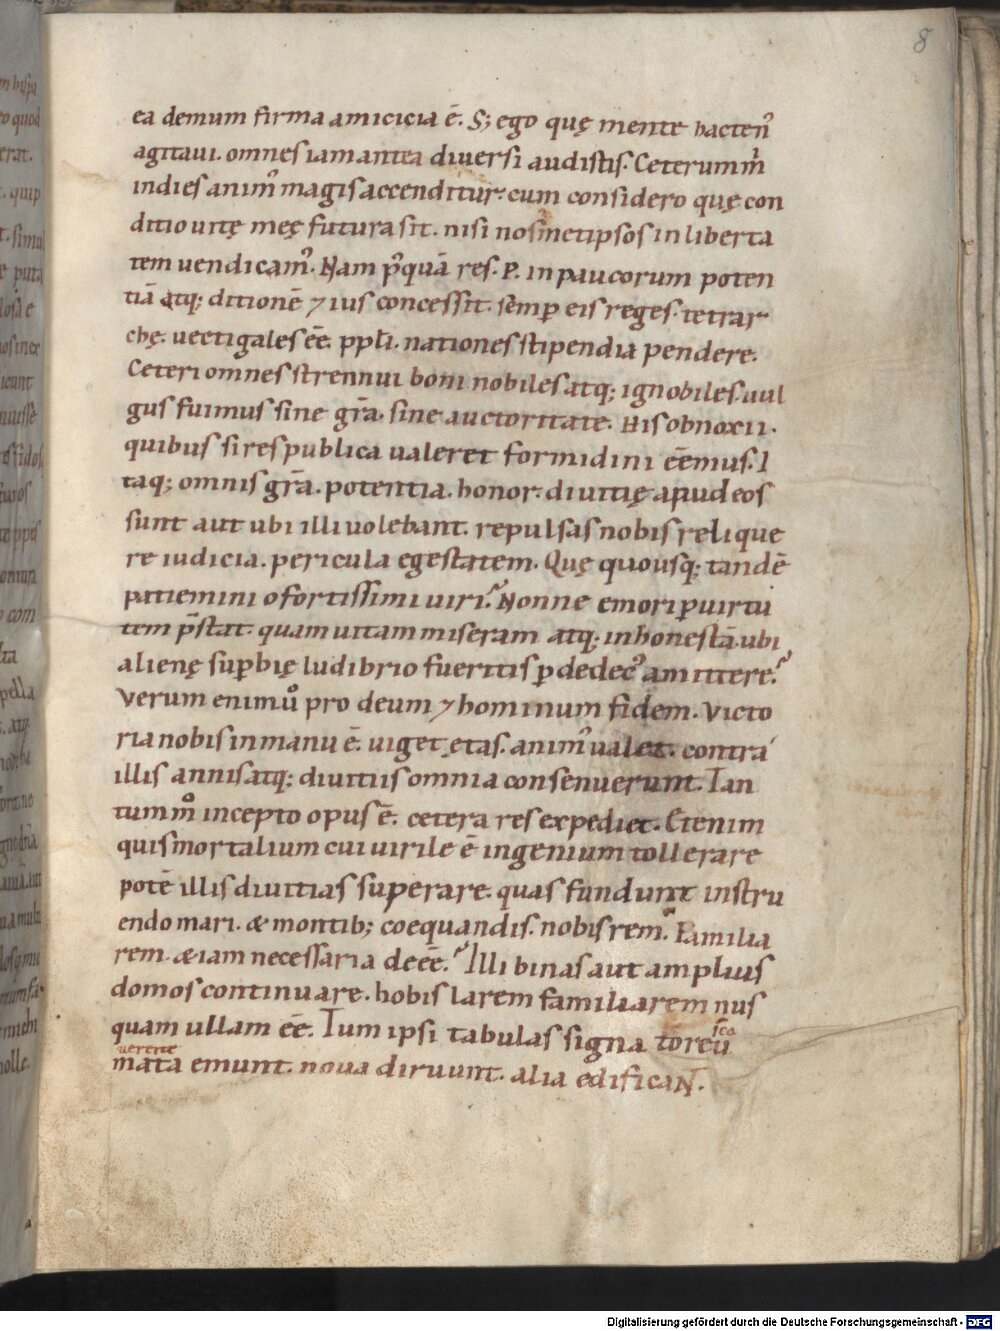 8
ea demum firma amicicia ē. S; ego quę mente hacten᾿
agitaui. omnes iam antea diuersi audistis. Ceterum m̄
indies anim᾿ magis accenditur. cum considero quę con
ditio uitę meę futura sit. nisi nosmetipsos in liberta
tem uendicam᾿. Nam p᾿quā res. P. in paucorum poten
tiā atq; ditionē ⁊ ius concessit. semp eis reges. tetrar
chę. uectigales eē. ppłi. nationes stipendia pendere.
Ceteri omnes strennui boni nobiles atq; ignobiles. uul
gus fuimus sine grā. sine auctoritate. His obnoxii.
quibus si res publica ualeret formidini eēmus. I
taq; omnis grā. potentia. honor. diuitię apud eos
sunt aut ubi illi uolebant. repulsas nobis relique
re iudicia. pericula egestatem. Quę quousq; tandē
patiemini o fortissimi uiri? Nonne emori p uirtu
tem p̄stat. quam uitam miseram atq; inhonestā. ubi
alienę supbię ludibrio fueritis p dedec᾿ amittere?
Verum enimů pro deum ⁊ hominum fidem. Victo
ria nobis in manu ē. uiget ętas. anim᾿ ualet. contra
illis annis atq; diuitiis omnia consenuerunt. Tan
tummͦ incepto opus ē. cetera res expediet. Etenim
quis mortalium cui uirile ē ingenium tollerare
potē illis diuitias superare. quas fundunt instru
endo mari. & montib; coequandis. nobis rem. Familia
rem. & iam necessaria deeē? Illi binas aut amplius
domos continuare. nobis larem familiarem nus
quam ullam eē. Tum ipsi tabulas signa toreu
mata emunt. noua diruunt. alia edificaN.
Digitalisierung gefördert durch die Deutsche Forschungsgemeinschaft - DFG